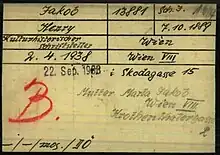 Jakob 13881 Sch. J.
Henry 7.10.1889
Kulturhistorischer
Schriftsteller Wien
2. 4. 1938 Wien VIII
22. Sep. 1938 i Skodagasse 15
B. Mutter Marta Jakob
Wien VIII
-/-/mos./II